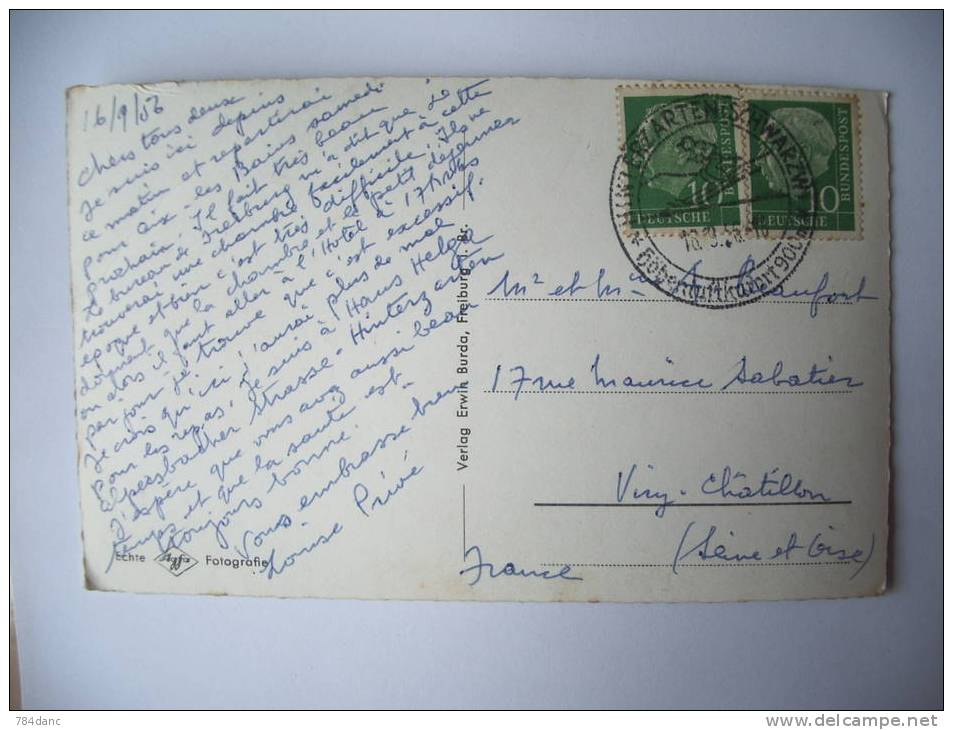 16/9/56
Chers tous deux
Je suis ici depuis
ce matin et repartirai
pour Aix-les-Bains samedi
prochain. Il fait très beau
Le bureau de Freiburg m'a dit que je
trouverai une chambre facilement à cette
époque et bien c'est très difficile, Ils ne
donnent que la chambre et le petit déjeuner
ou alors il faut aller à l'Hotel à 17 Marks
par jour je trouve que c'est excessif.
Je crois qu'ici j'aurai plus de mal
pour les repas, Je suis à Haus Helga
Alpersbacher Strasse - Hinterzarten
J'espère que vous avez aussi beau
temps et que la santé est
toujours bonne.
Vous embrasse bien
Louise Privé
Echte Agfa Fotografie
Verlag Erwin Burda, Freiburg i. Br.
HINTERZARTEN (SCHWARZW)
Höhenluftkurort 900
10 DEUTSCHE BUNDESPOST
10 DEUTSCHE BUNDESPOST
Mr et Mme
17 rue Maurice Sabatier
Viry-Châtillon
(Seine et Oise)
France
784danc
http://www.delcampe.net